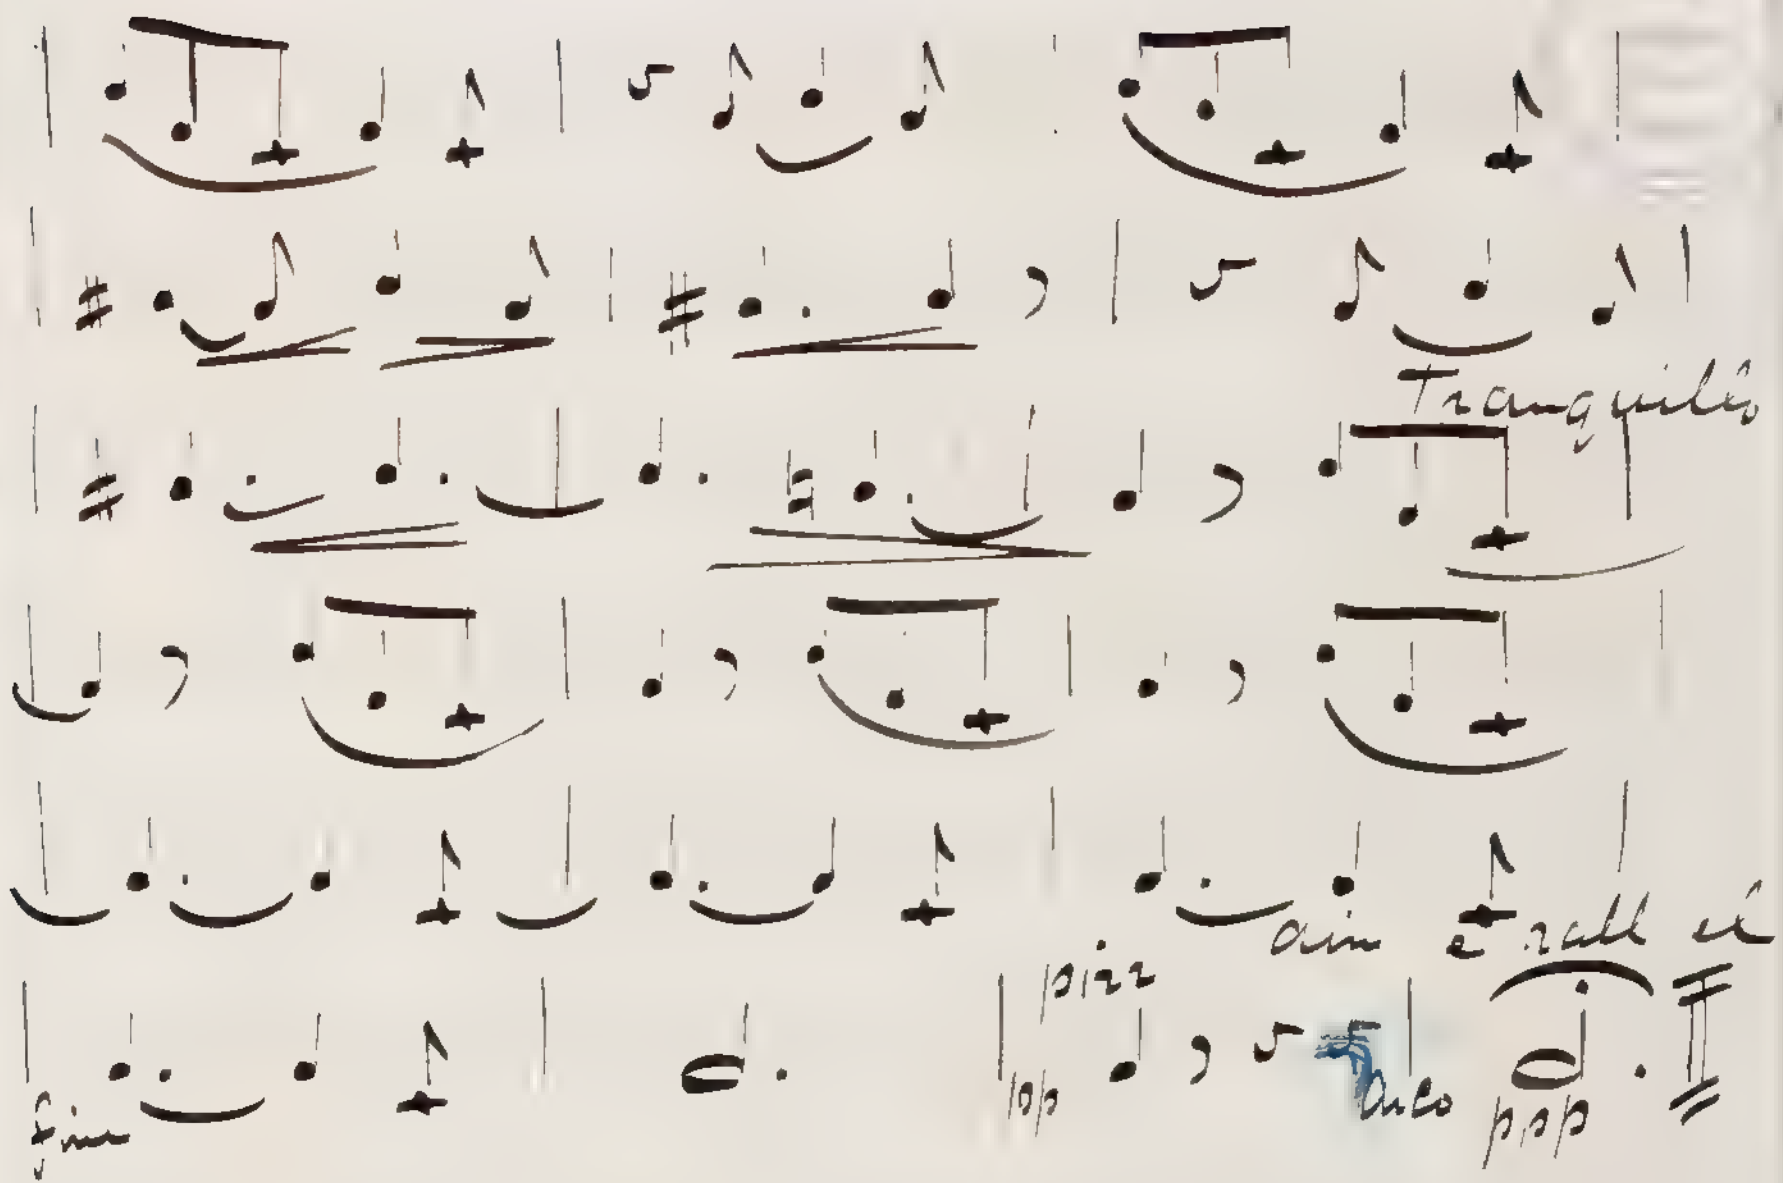 Tranquillo
dim e rall il
pizz
fine
pp
Arco
ppp